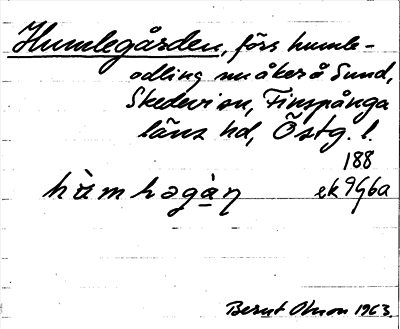 Humlegården, förr humle-
odling nu åker å Sund,
Skedevi sn, Finspånga
läns hd, Östg. l.
188
ek 9G6a
Bernt Olsson 1963.